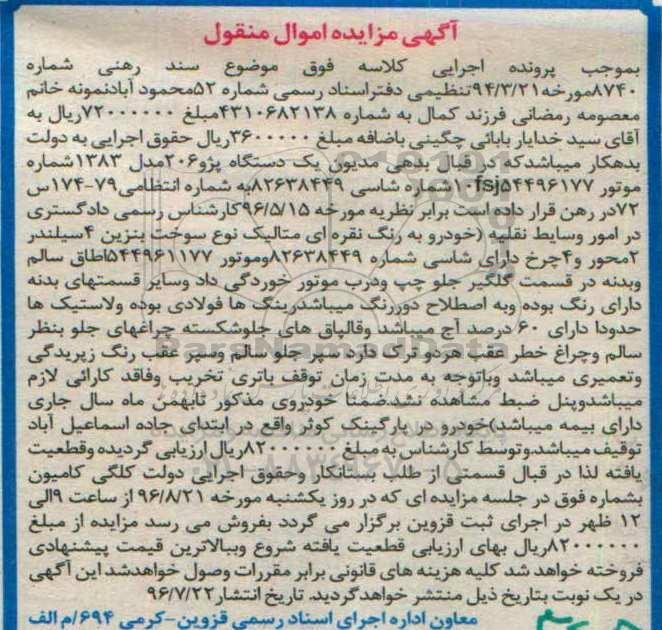 آگهی مزایده اموال منقول
بموجب پرونده اجرایی کلاسه فوق موضوع سند رهنی شماره
۸۷۴۰مورخه۹۴/۳/۲۱تنظیمی دفتراسناد رسمی شماره ۵۲محمود آبادنمونه خانم
معصومه رمضانی فرزند کمال به شماره ۴۳۱۰۶۸۲۱۳۸مبلغ ۷۲۰۰۰۰۰۰ریال به
آقای سید خدایار بابائی چگینی باضافه مبلغ ۳۶۰۰۰۰۰ریال حقوق اجرایی به دولت
بدهکار میباشدکه در قبال بدهی مدیون یک دستگاه پژو۲۰۶مدل ۱۳۸۳شماره
موتور ۱۰fsj۵۴۴۹۶۱۷۷شماره شاسی ۸۲۶۳۸۴۴۹به شماره انتظامی۷۹-۱۷۴س
۷۲در رهن قرار داده است برابر نظریه مورخه ۹۶/۵/۱۵کارشناس رسمی دادگستری
در امور وسایط نقلیه (خودرو به رنگ نقره ای متالیک نوع سوخت بنزین ۴سیلندر
۲محور و۴چرخ دارای شاسی شماره ۸۲۶۳۸۴۴۹وموتور ۵۴۴۹۶۱۱۷۷اطاق سالم
وبدنه در قسمت گلگیر جلو چپ ودرب موتور خوردگی داد وسایر قسمتهای بدنه
دارای رنگ بوده وبه اصطلاح دوررنگ میباشدرینگ ها فولادی بوده ولاستیک ها
حدودا دارای ۶۰ درصد آج میباشد وقالپاق های جلوشکسته چراغهای جلو بنظر
سالم وچراغ خطر عقب هردو ترک دارد سپر جلو سالم وسپر عقب رنگ زپریدگی
وتعمیری میباشد وباتوجه به مدت زمان توقف باتری تخریب وفاقد کارائی لازم
میباشدوپنل ضبط مشاهده نشد.ضمنا خودروی مذکور تابهمن ماه سال جاری
دارای بیمه میباشد)خودرو در پارگینک کوثر واقع در ابتدای جاده اسماعیل آباد
توقیف میباشد.وتوسط کارشناس به مبلغ ۸۲۰۰۰۰۰۰ریال ارزیابی گردیده وقطعیت
یافته لذا در قبال قسمتی از طلب بستانکار وحقوق اجرایی دولت کلگی کامیون
بشماره فوق در جلسه مزایده ای که در روز یکشنبه مورخه ۹۶/۸/۲۱ از ساعت ۹الی
۱۲ ظهر در اجرای ثبت قزوین برگزار می گردد بفروش می رسد مزایده از مبلغ
۸۲۰۰۰۰۰۰ریال بهای ارزیابی قطعیت یافته شروع وببالاترین قیمت پیشنهادی
فروخته خواهد شد کلیه هزینه های قانونی برابر مقررات وصول خواهدشد این آگهی
در یک نوبت بتاریخ ذیل منتشر خواهدگردید. تاریخ انتشار۹۶/۷/۲۲
معاون اداره اجرای اسناد رسمی قزوین-کرمی ۶۹۴/م الف
ParsNamadData